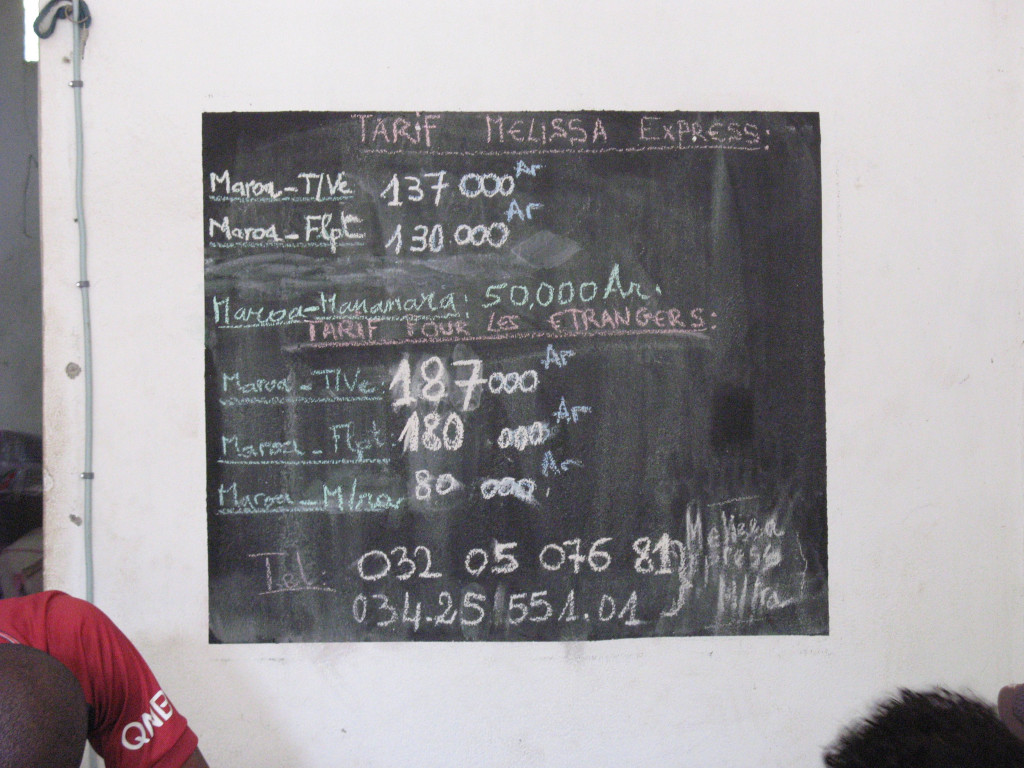 TARIF MELISSA EXPRESS:
Maroa-T/Ve 137 000 Ar
Maroa-Flpt 130.000 Ar
Maroa-Mananara: 50.000 Ar.
TARIF POUR LES ETRANGERS:
Maroa-T/Ve: 187 000 Ar
Maroa-Flpt: 180 000 Ar
Maroa-M/nra 80 000 Ar
Tel: 032 05 076 81
034.25 551.01
Melissa
M/tra
QNE